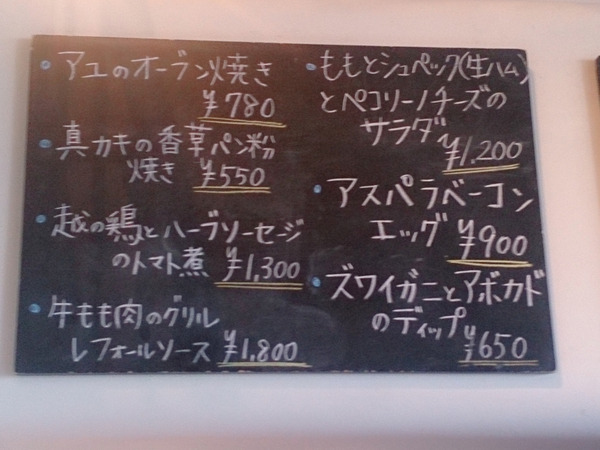 ・アユのオーブン焼き
¥780
・真カキの香草パン粉
焼き ¥550
・越の鶏とハーブソーセージ
のトマト煮 ¥1,300
・牛もも肉のグリル
レフォールソース ¥1,800
・ももとシュペック(生ハム)
とペコリーノチーズの
サラダ ¥1,200
・アスパラベーコン
エッグ ¥900
・ズワイガニとアボカド
のディップ ¥650